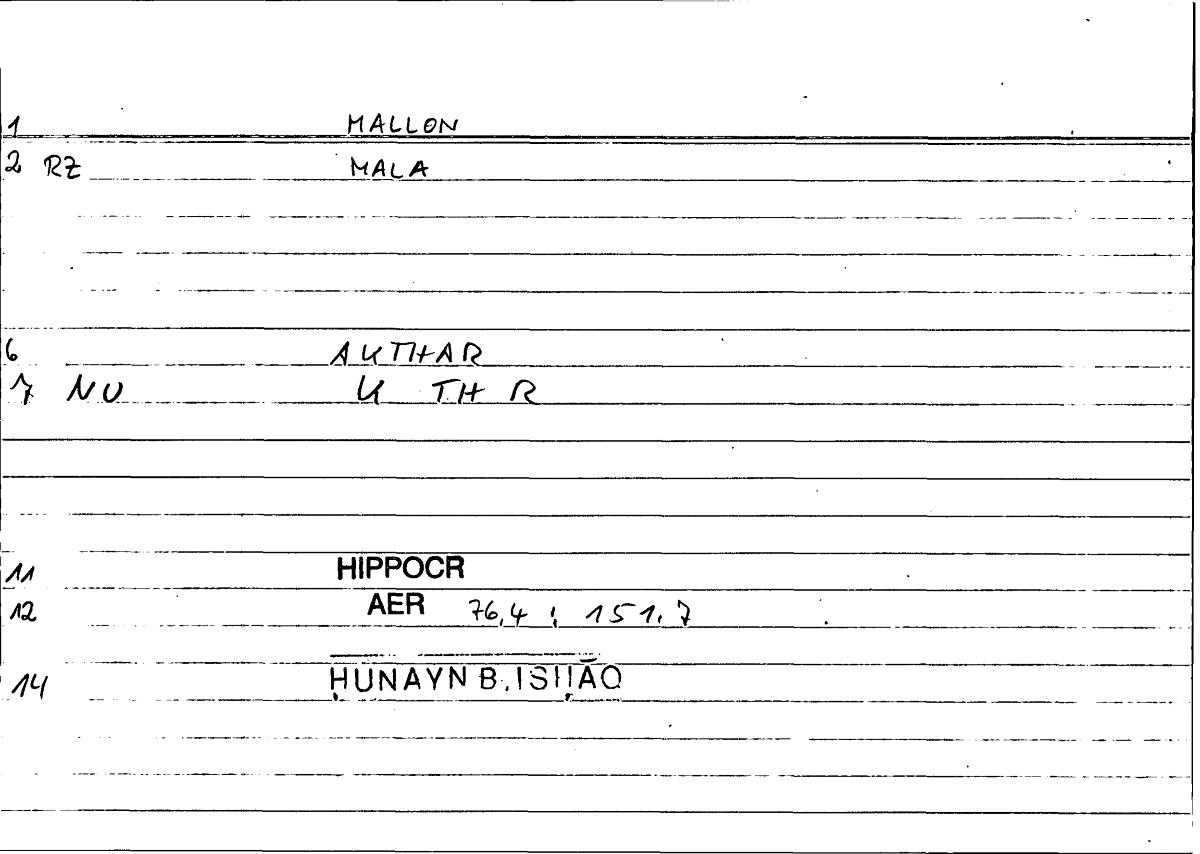 1 MALLON
2 RZ MALA
6 AKTHAR
7 NU K TH R
11 HIPPOCR
12 AER 76,4 ; 151,7
14 ḤUNAYN B. ISḤĀQ